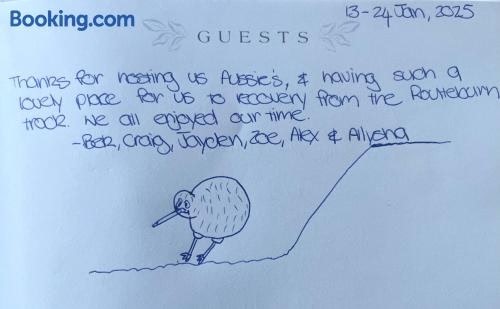 Booking.com
13-24 Jan, 2025
GUESTS
Thanks for hosting us Aussie's, & having such a
lovely place for us to recovery from the Routeburn
track. We all enjoyed our time.
-Bek, Craig, Jayden, Zoe, Alex & Allyena